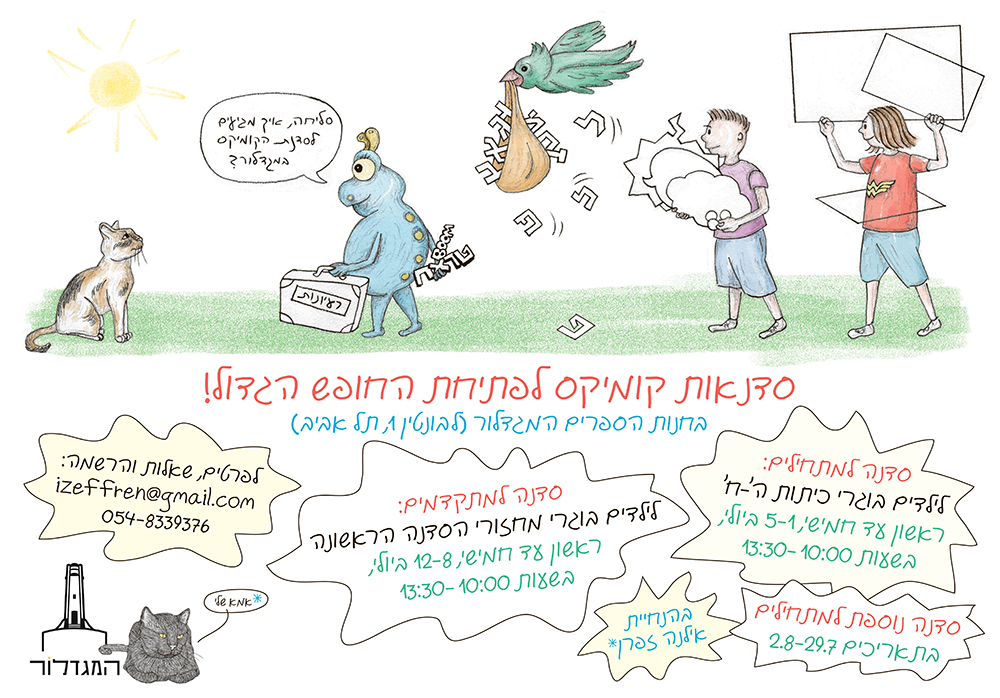 סליחה, איך מגיעים
לסדנת הקומיקס
במגדלור?
רעיונות
BOOM
טראח
סדנאות קומיקס לפתיחת החופש הגדול!
בחנות הספרים המגדלור (לבונטין 1, תל אביב)
סדנה למתחילים:
לילדים בוגרי כיתות ה'-ח'
ראשון עד חמישי, 5-1 ביולי,
בשעות 10:00-13:30
סדנה למתקדמים:
לילדים בוגרי מחזורי הסדנה הראשונה
ראשון עד חמישי, 12-8 ביולי,
בשעות 10:00-13:30
לפרטים, שאלות והרשמה:
izeffren@gmail.com
054-8339376
סדנה נוספת למתחילים
בתאריכים 2.8-29.7
בהנחיית
אילנה זפרן*
*אמא שלי
המגדלור